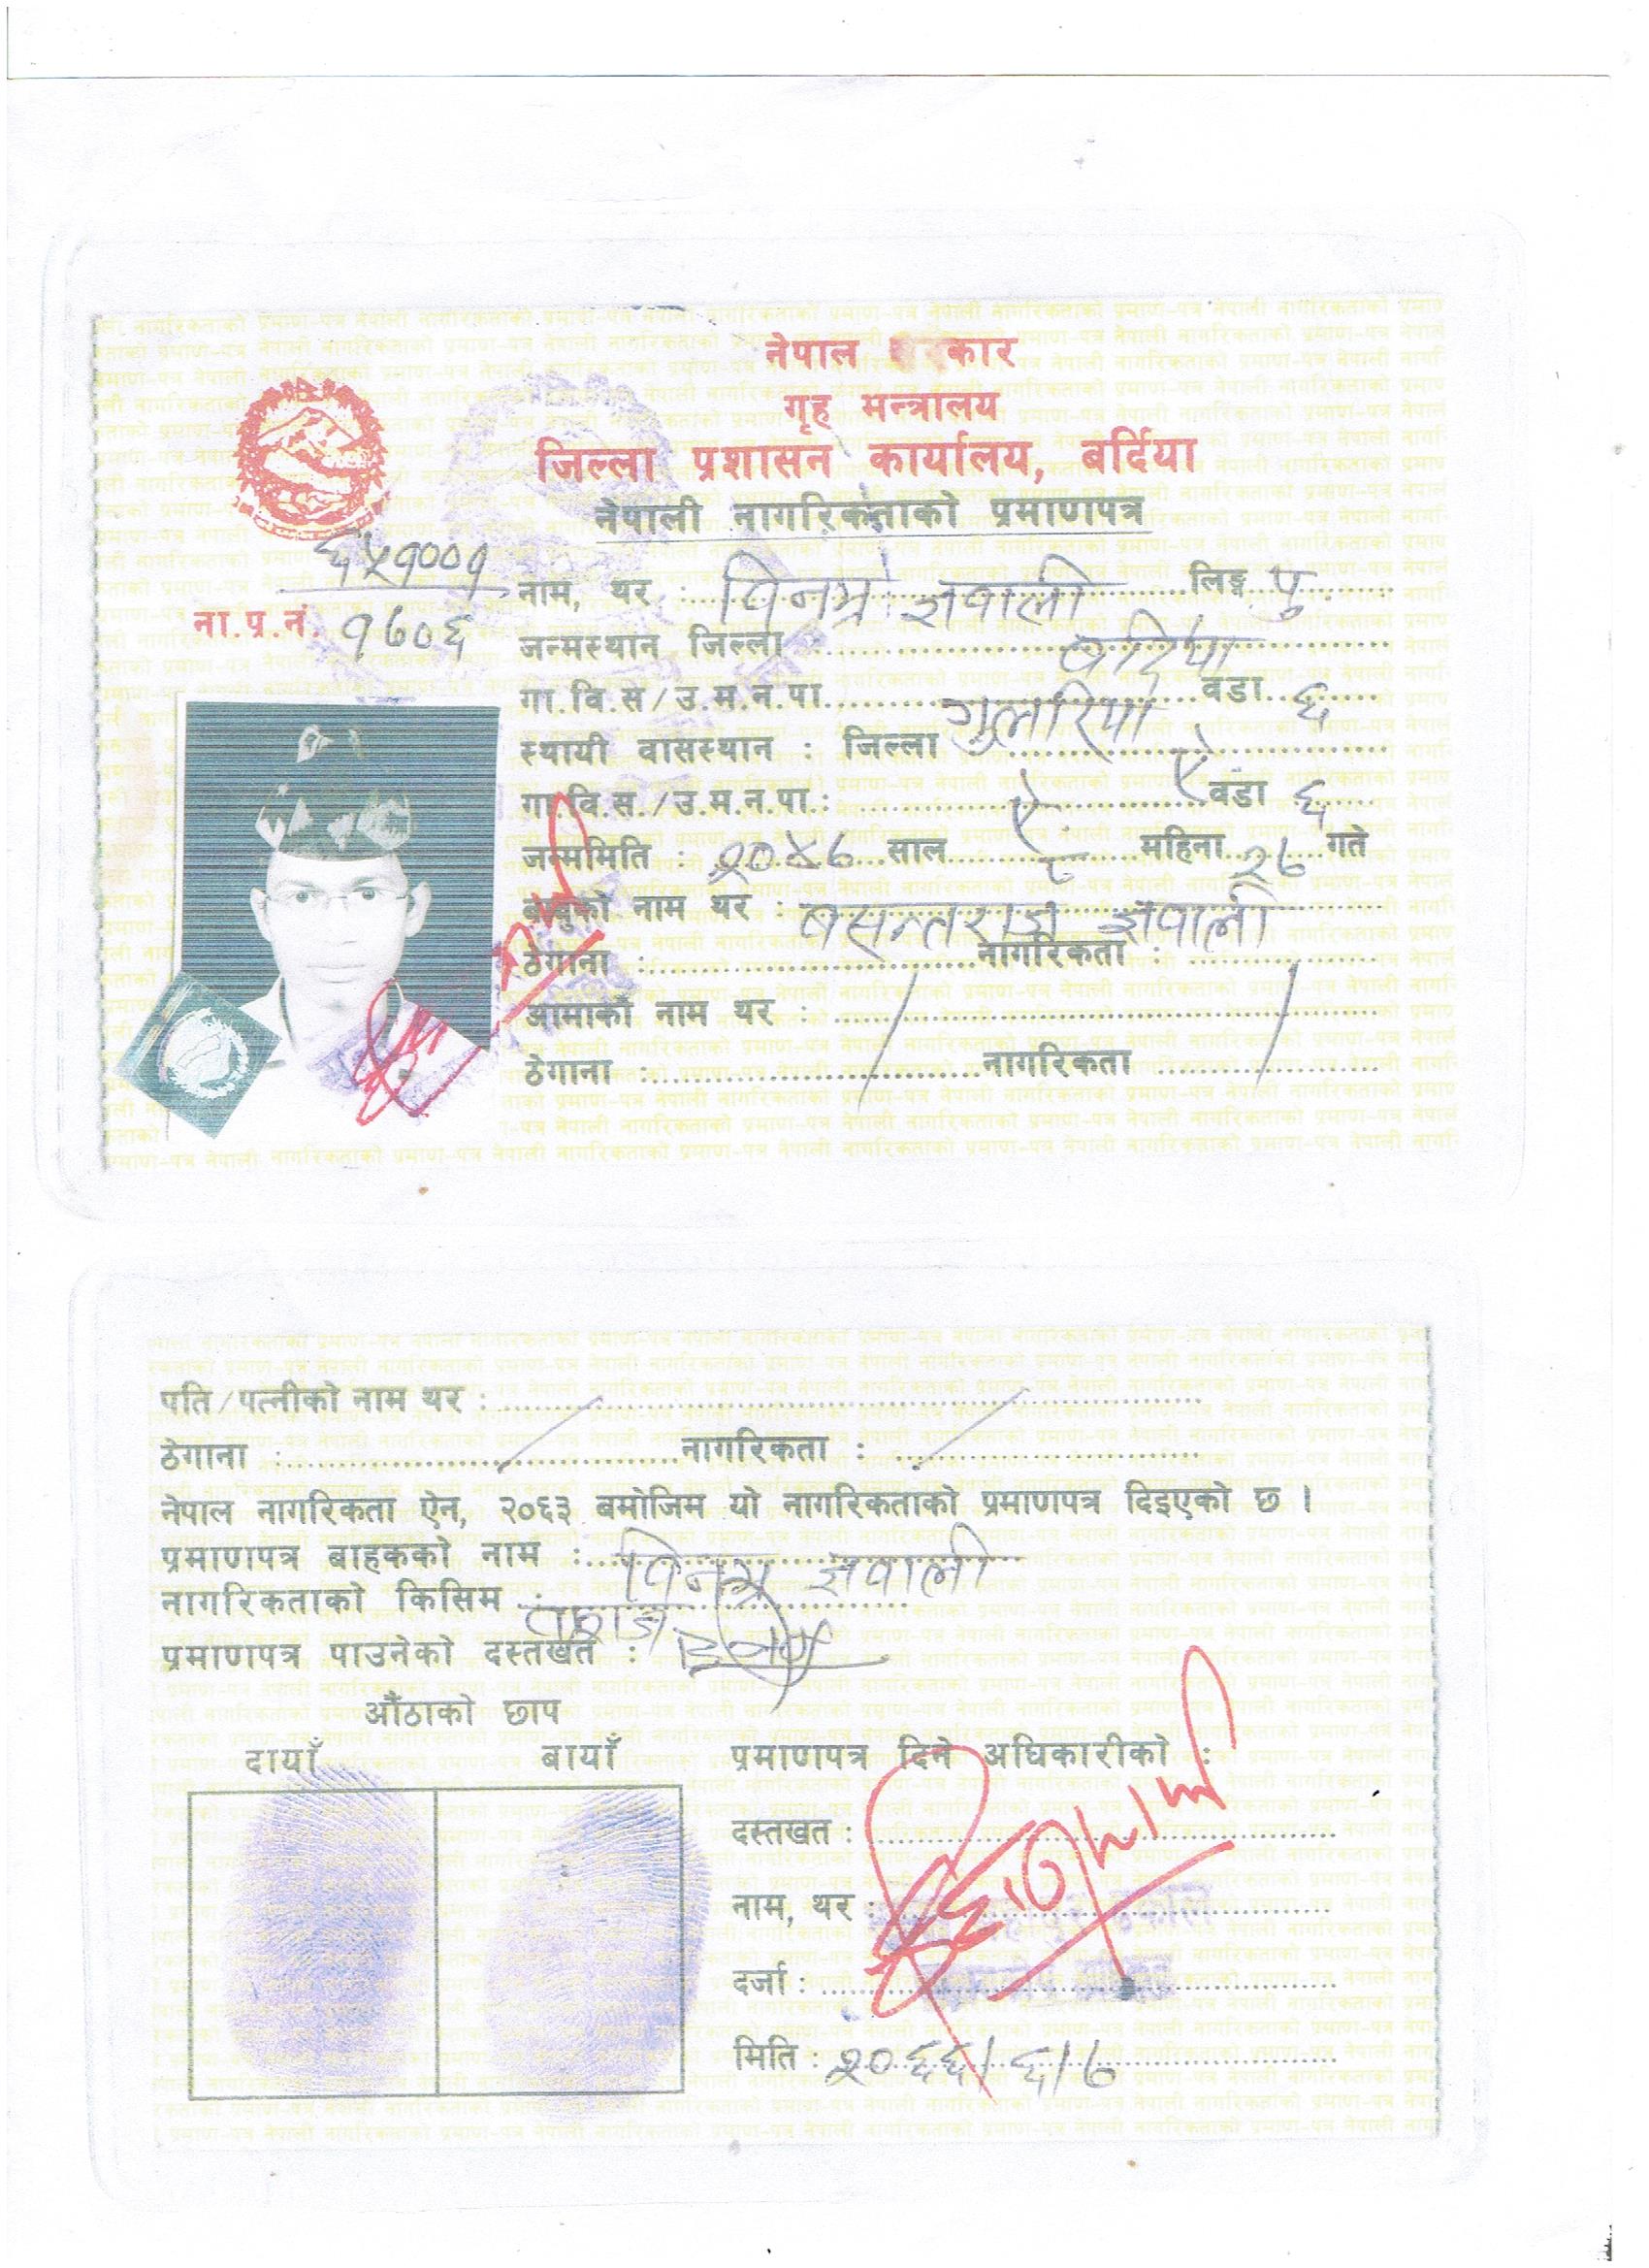 नेपाल सरकार
गृह मन्त्रालय
जिल्ला प्रशासन कार्यालय, बर्दिया
नेपाली नागरिकताको प्रमाणपत्र
ना.प्र.नं. ६५१००१
१७०६
नाम, थर : विनम्र ज्ञवाली लिङ्ग पु
जन्मस्थान जिल्ला : बर्दिया
गा.वि.स/उ.म.न.पा. गुलरिया वडा ६
स्थायी वासस्थान : जिल्ला ऐ
गा.वि.स./उ.म.न.पा.: ऐ वडा ६
जन्ममिति : २०४७ साल ८ महिना २८ गते
बाबुको नाम थर : बसन्तराज ज्ञवाली
ठेगाना : नागरिकता :
आमाको नाम थर :
ठेगाना : नागरिकता
पति/पत्नीको नाम थर :
ठेगाना : नागरिकता :
नेपाल नागरिकता ऐन, २०६३ बमोजिम यो नागरिकताको प्रमाणपत्र दिइएको छ ।
प्रमाणपत्र बाहकको नाम : विनम्र ज्ञवाली
नागरिकताको किसिम : वंशज
प्रमाणपत्र पाउनेको दस्तखत :
औंठाको छाप
दायाँ बायाँ
प्रमाणपत्र दिने अधिकारीको :
दस्तखत :
नाम, थर :
दर्जा :
मिति : २०६६/६/७